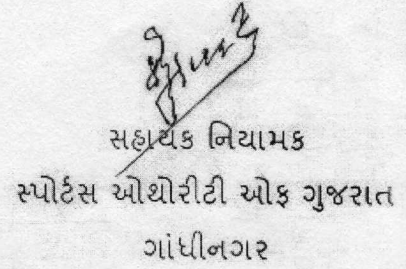 સહાયક નિયામક
સ્પોર્ટસ ઓથોરીટી ઓફ ગુજરાત
ગાંધીનગર